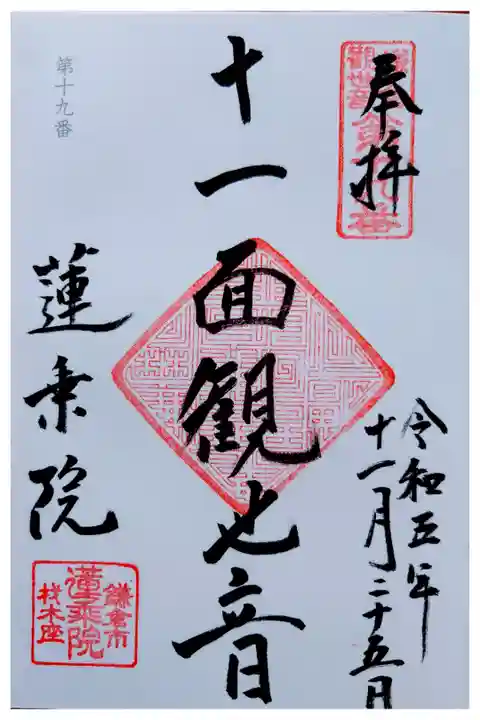 奉拝
令和五年
十一月二十五日
十一面観世音
第十九番
蓮乗院
鎌倉市
蓮乗院
材木座